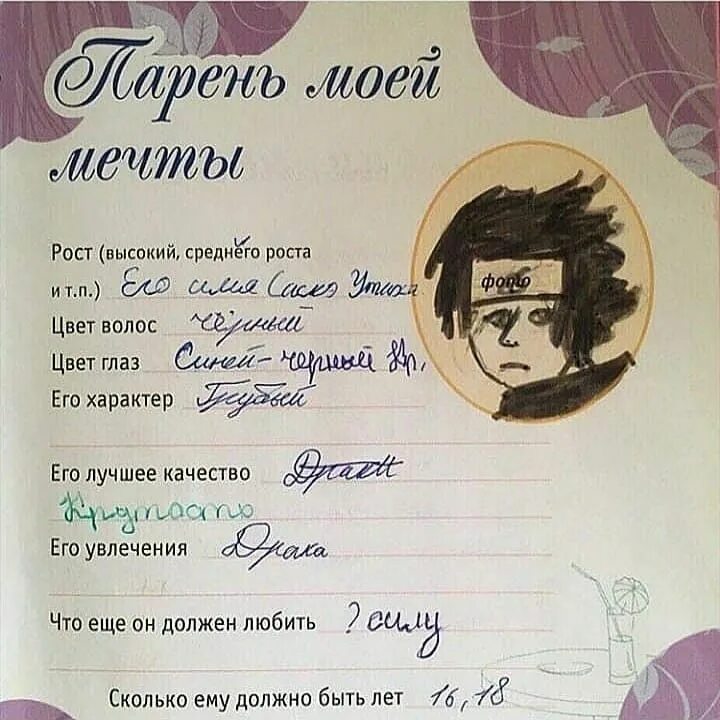 Парень моей
мечты
Рост (высокий, среднего роста
и т.п.) Его имя Саскэ Учиха
Цвет волос чёрный
Цвет глаз Синей-черный
фото
Его характер Грубый
Его лучшее качество
Крутость
Его увлечения Драка
Что еще он должен любить ? силу
Сколько ему должно быть лет 16, 18